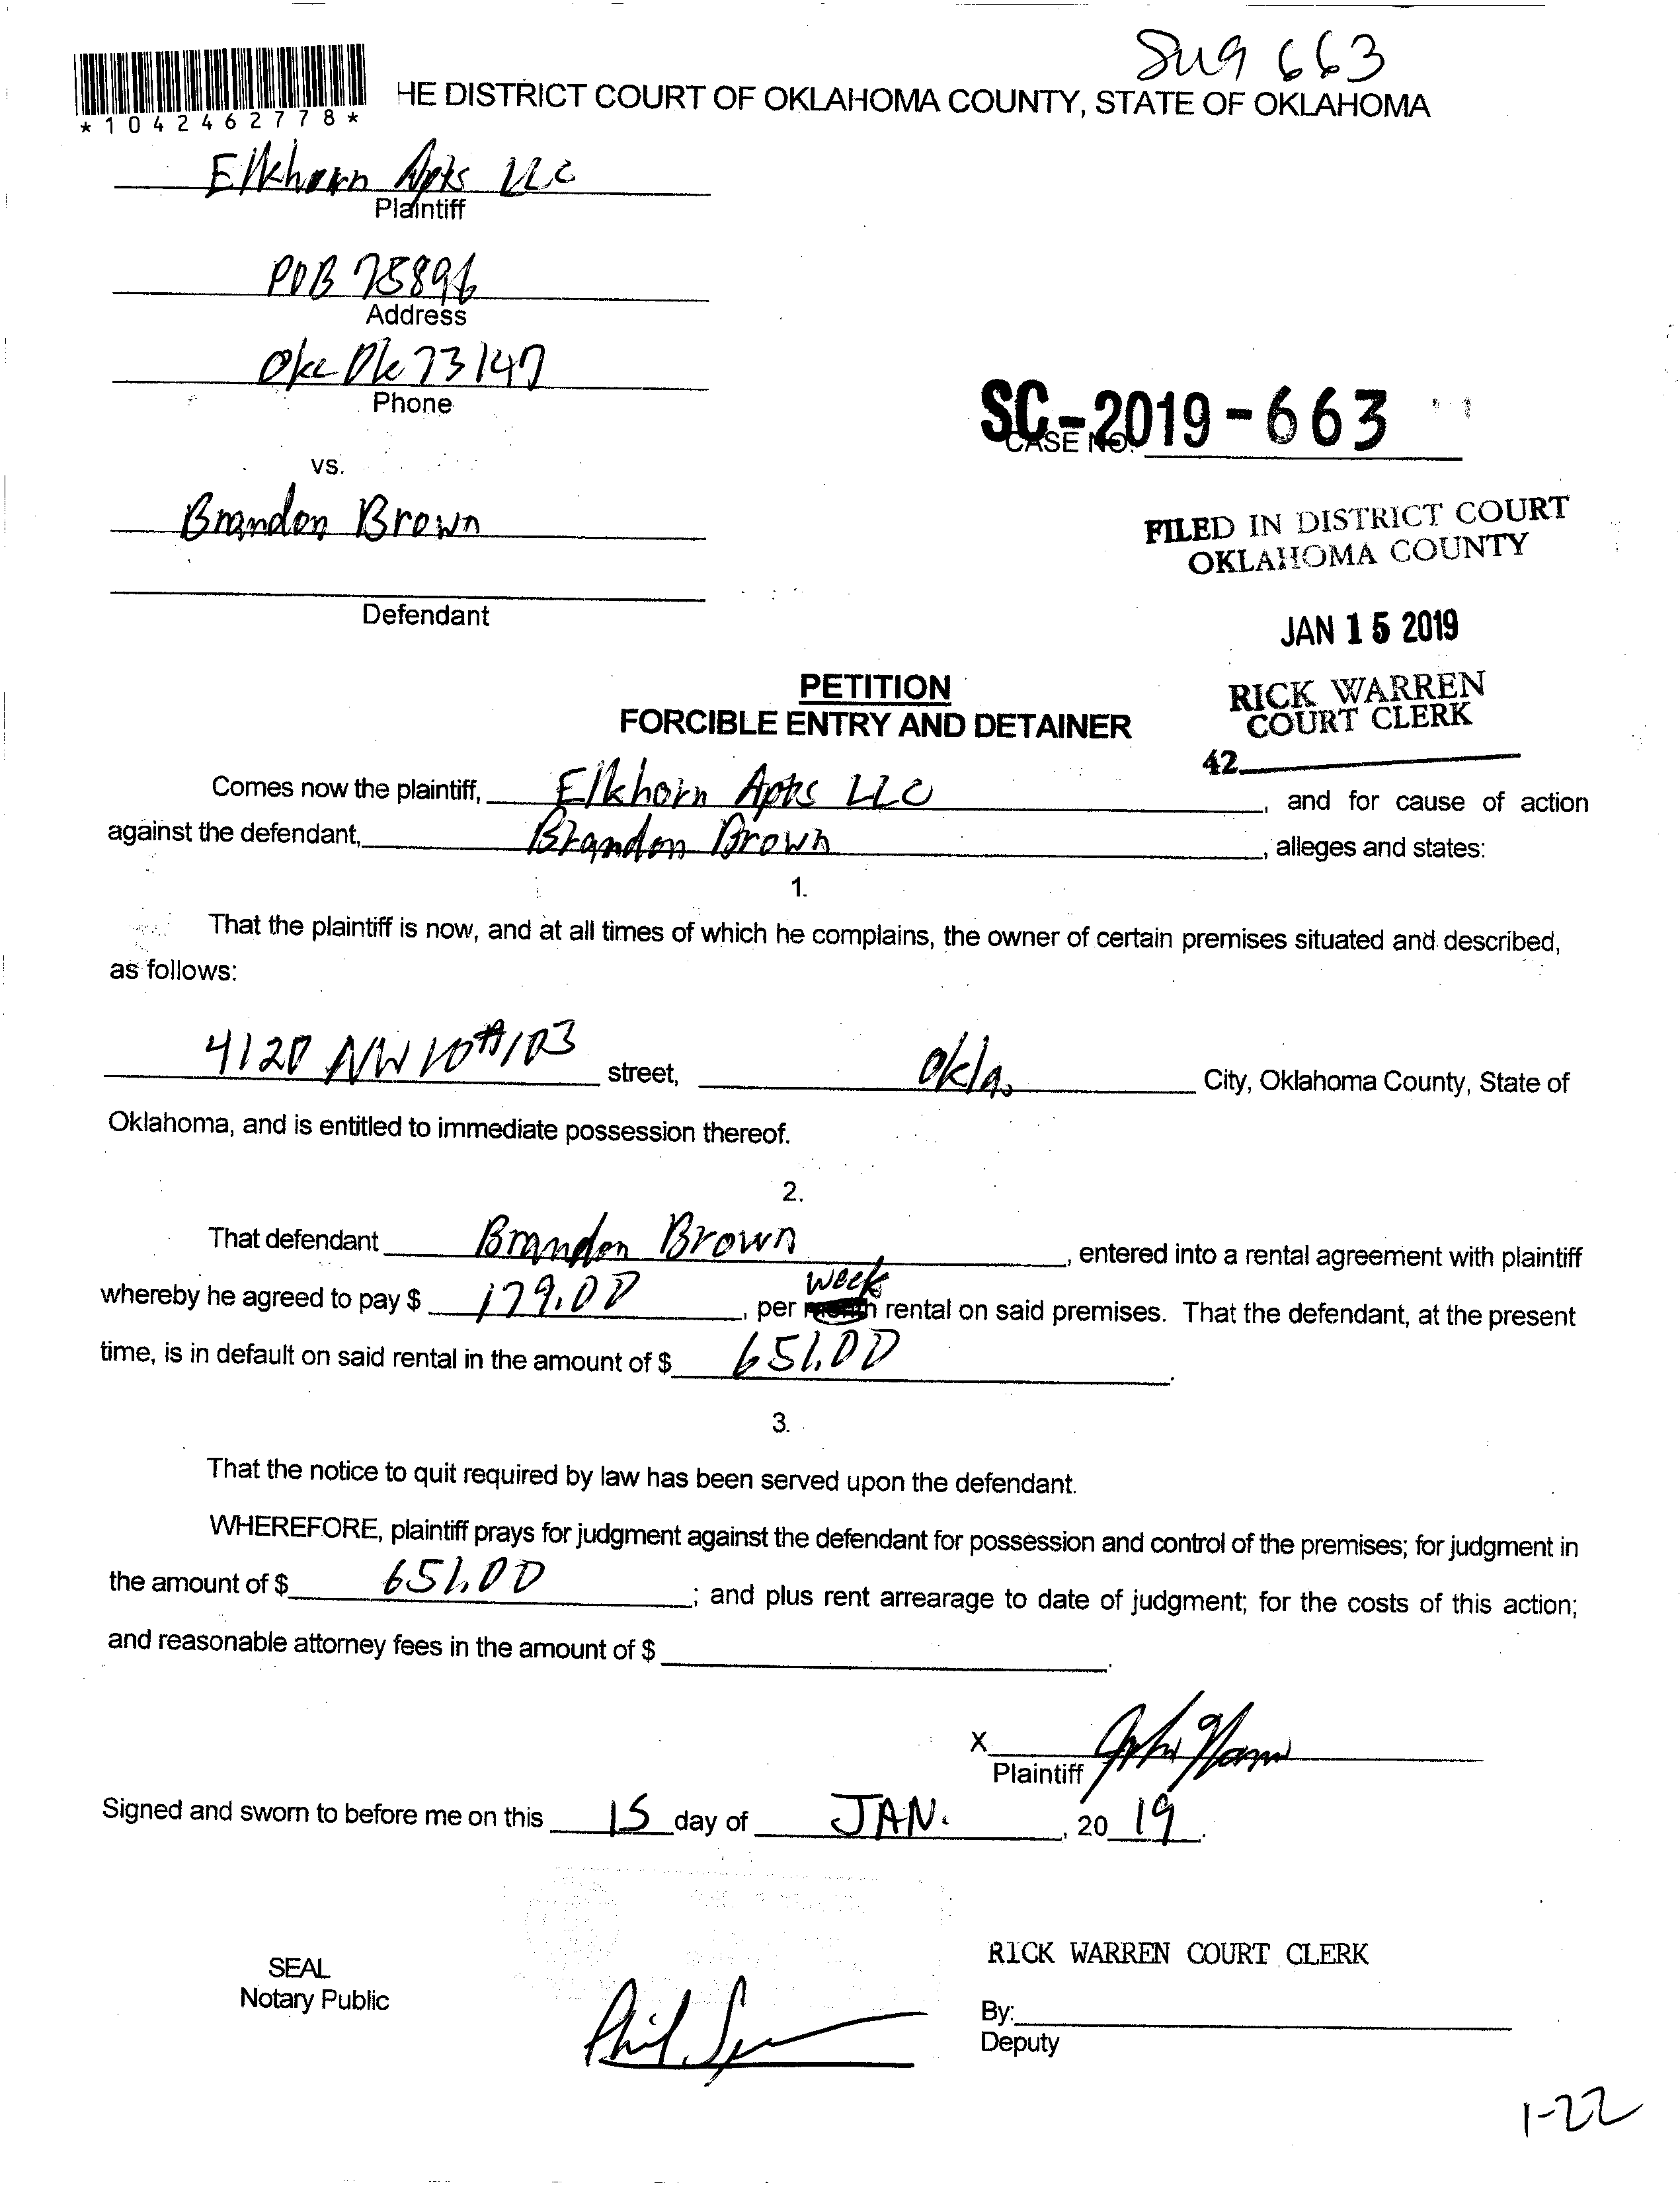 *1042462778*
HE DISTRICT COURT OF OKLAHOMA COUNTY, STATE OF OKLAHOMA
663
Elkhorn Apts LLC
Plaintiff
POB 75896
Address
Okc Ok 73147
Phone
SC-2019-663
CASE NO.
vs.
Brandon Brown
Defendant
FILED IN DISTRICT COURT
OKLAHOMA COUNTY
JAN 15 2019
RICK WARREN
COURT CLERK
42
PETITION
FORCIBLE ENTRY AND DETAINER
Comes now the plaintiff, Elkhorn Apts LLC, and for cause of action
against the defendant, Brandon Brown, alleges and states:
1.
That the plaintiff is now, and at all times of which he complains, the owner of certain premises situated and described,
as follows:
4120 NW 10 #103 street, Okla. City, Oklahoma County, State of
Oklahoma, and is entitled to immediate possession thereof.
2.
That defendant Brandon Brown, entered into a rental agreement with plaintiff
week
whereby he agreed to pay $ 179.00, per month rental on said premises. That the defendant, at the present
time, is in default on said rental in the amount of $ 651.00.
3.
That the notice to quit required by law has been served upon the defendant.
WHEREFORE, plaintiff prays for judgment against the defendant for possession and control of the premises; for judgment in
the amount of $ 651.00; and plus rent arrearage to date of judgment; for the costs of this action;
and reasonable attorney fees in the amount of $.
X
Plaintiff
Signed and sworn to before me on this 15 day of JAN., 20 19.
SEAL
Notary Public
RICK WARREN COURT CLERK
By:
Deputy
1-22